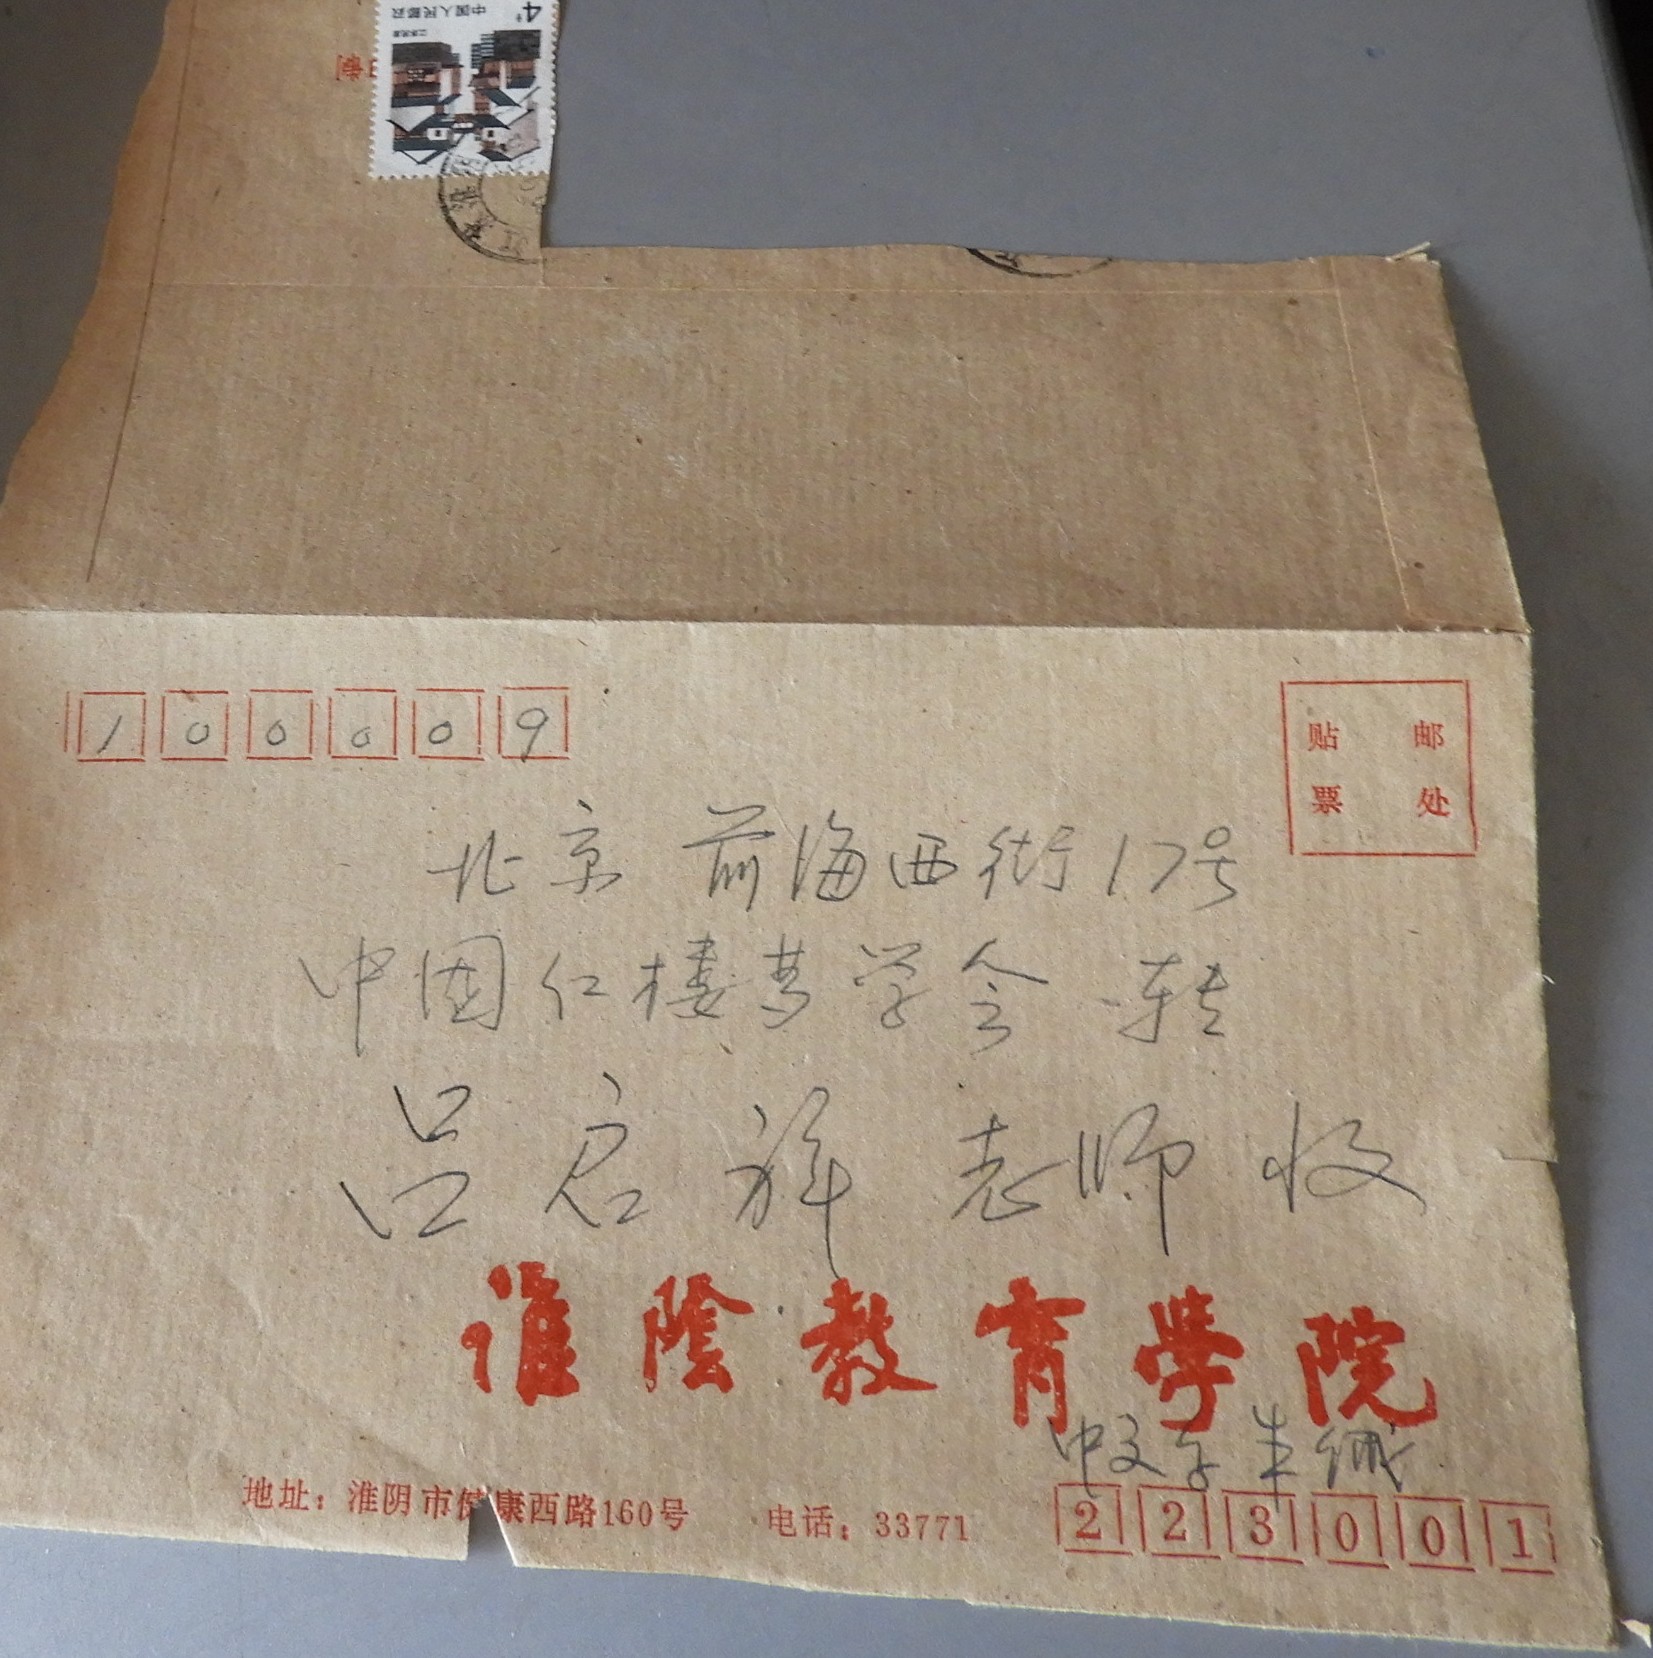 4分
中国人民邮政
江苏民居
制
江苏淮
100009
贴 邮
票 处
北京 前海西街17号
中国红楼梦学会 转
吕启祥 老师 收
淮陰教育學院
中文系 朱
地址：淮阴市健康西路160号 电话：33771
223001